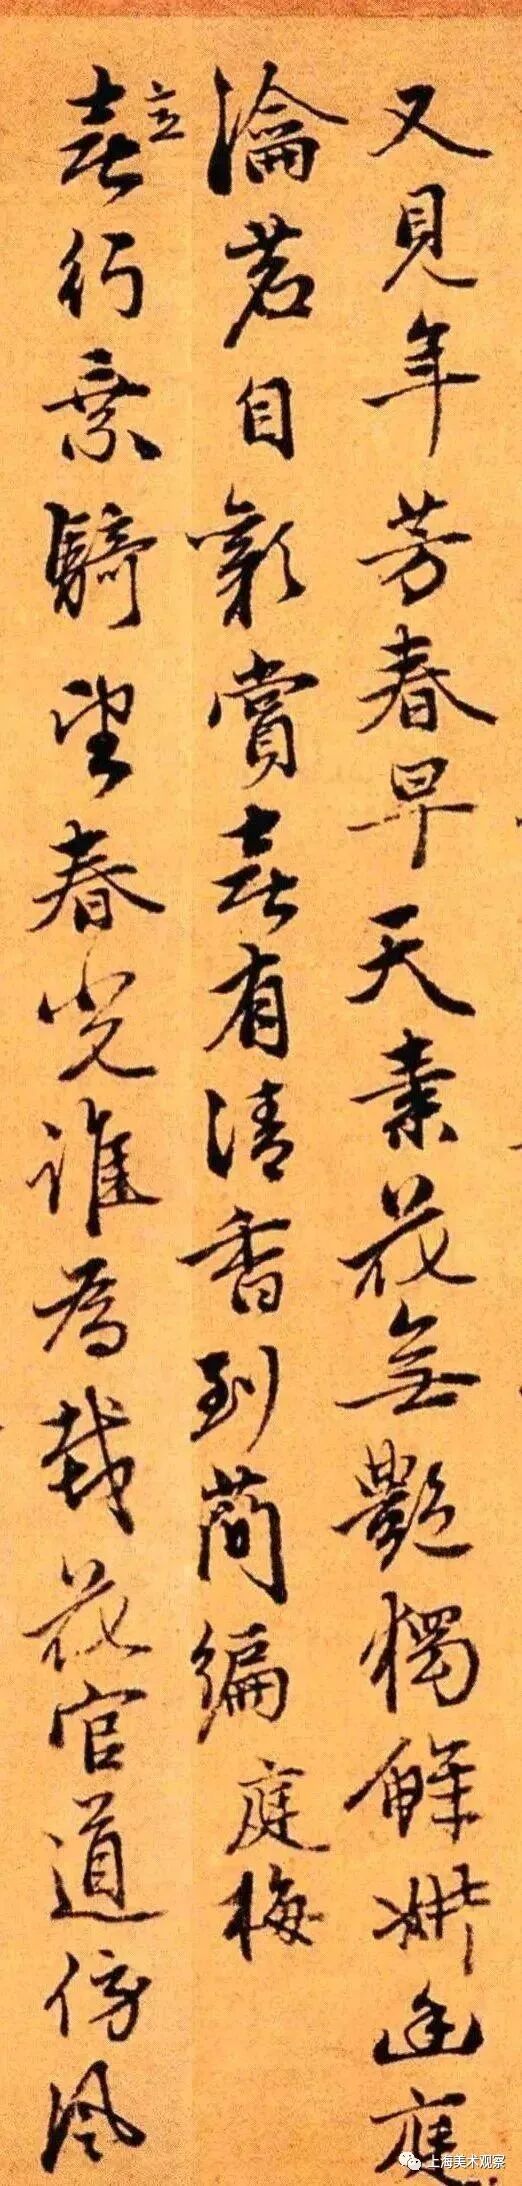 又見年芳春早天素花無艷獨鮮妍幽庭
瀹茗自歎賞喜有清香到簡編 庭梅
喜立行乘騎望春光誰為栽花官道傍風
上海美术观察